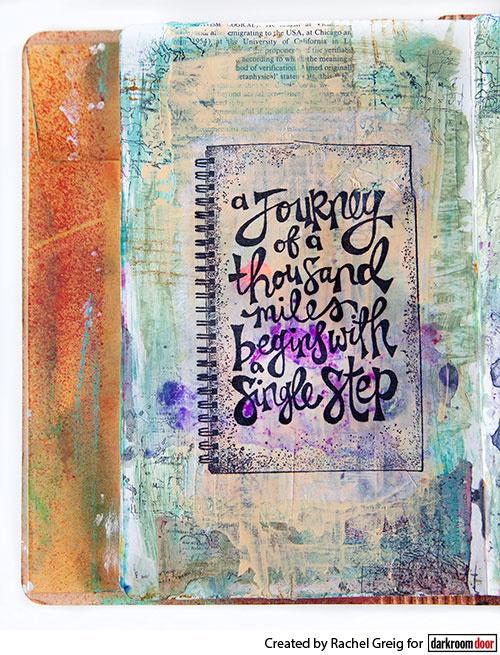 OGRAPHY
emigrating to the USA, at Chicago an
1954), at the University of California in L
proponents of the verifiabi
according to which the meaning
hod of verification. Aimed original
etaphysical' state
a Journey
of a
thousand
miles
begins with
a
single step
Created by Rachel Greig for darkroomdoor